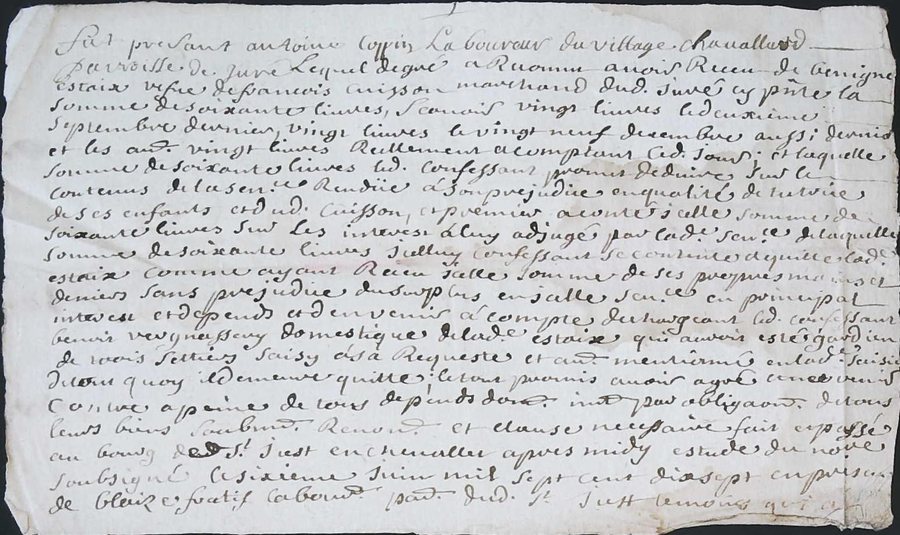 fut presant antoine Coppin Laboureur du village chavalland
parroisse de Juré Lequel degré a Reconnu avoir Receu de benigne
estaix vefve de francois Cuisson marchand dud. Juré cy pnte la
somme de soixante livres, scavoir vingt livres le deuxieme
septembre dernier, vingt livres le vingt neuf desembre aussi dernier
et les aut. vingt livres Reellement acomptant led. jour, et laquelle
somme de soixante livres led. Confessant promit deduire sur le
contenus de la sen.ce Rendüe à son prejudice en qualité de tutrice
de ses enfants et dud. Cuisson, et premier aconte icelle somme de
soixante livres sur les interest à luy adjugé par lad. sen.ce de laquelle
somme de soixante livres icelluy Confessant se contente aquitte lad.
estaix comme ayant Receu icelle somme de ses propres mains et
deniers sans prejudice du surplus en icelle sen.ce en principal
interest et depends et d'en venir à compte deschargeant led. confessant
benoit vergnassery domestique de lad.e estaix qui avoit esté gardien
de trois settiers saisy à sa Requeste et aut. mentionné en lad. saisie
de tout quoy il demeure quitte, le tout promis avoir agré
Contre a peine de tous depends dom. int. par obligaon. de tous
leurs biens soubmi. Renon. et clause necessaire fait et passé
au bourg de St. Just en chevallet apres midy estude du no.re
soubsigné le sixieme Juin mil sept cent dix sept en presence
de blaize fratif labour. dud. St. Just temoins qui